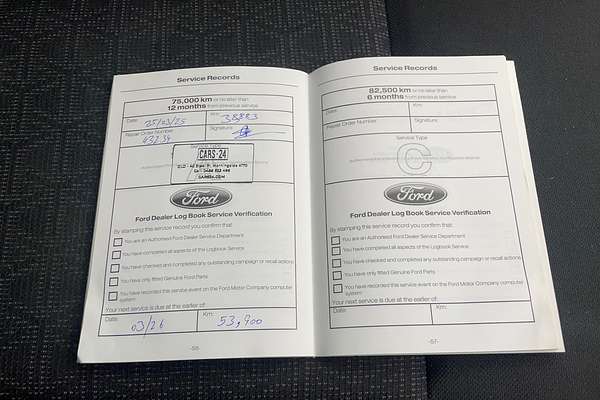 Service Records
75,000 km or no later than
12 months from previous service
Date: 25/03/25 Km: 38883
Repair Order Number Signature
43234
CARS·24
Ford
Ford Dealer Log Book Service Verification
By stamping this service record you confirm that:
You are an Authorised Ford Dealer Service Department
You have completed all aspects of the Logbook Service
You have checked and completed any outstanding campaign or recall actions
You have only fitted Genuine Ford Parts
You have recorded this service event on the Ford Motor Company computer
system
Your next service is due at the earlier of:
Date: Km:
03/26 53,900
Service Records
82,500 km or no later than
6 months from previous service
Date: Km:
Repair Order Number Signature
Service Type
C
Ford
Ford Dealer Log Book Service Verification
By stamping this service record you confirm that:
You are an Authorised Ford Dealer Service Department
You have completed all aspects of the Logbook Service
You have checked and completed any outstanding campaign or recall actions
You have only fitted Genuine Ford Parts
You have recorded this service event on the Ford Motor Company computer
system
Your next service is due at the earlier of:
Date: Km:
-57-